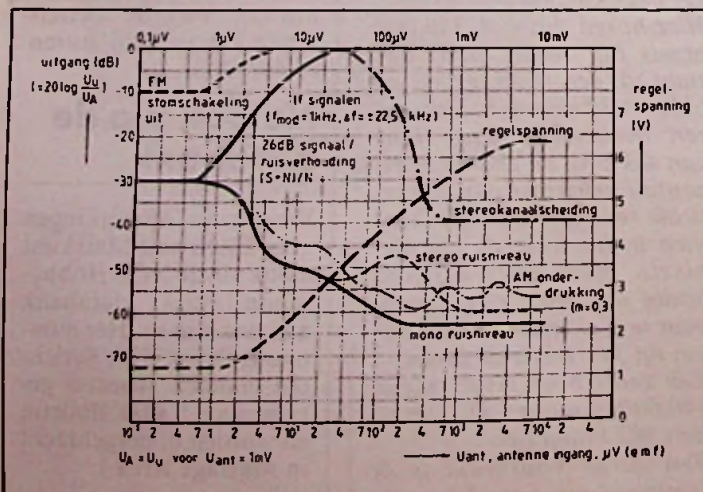 0,1µV 1µV 10µV 100µV 1mV 10mV
uitgang (dB)
(=20log Uu/UA)
-0
-10
-20
-30
-40
-50
-60
-70
FM
stomschakeling
uit
lf signalen
(fmod=1kHz, Δf=±22,5 kHz)
26dB signaal/
ruisverhouding
(S+N)/N
regelspanning
stereokanaalscheiding
stereo ruisniveau
AM onder-
drukking
(m=0,3
mono ruisniveau
regel-
spanning
(V)
7
6
5
4
3
2
1
0
2 4 7 10⁰ 2 4 7 10¹ 2 4 7 10² 2 4 7 10³ 2 4 7 10⁴ 2 4
UA = Uu voor Uant = 1mV
Uant, antenne ingang, µV (emf)